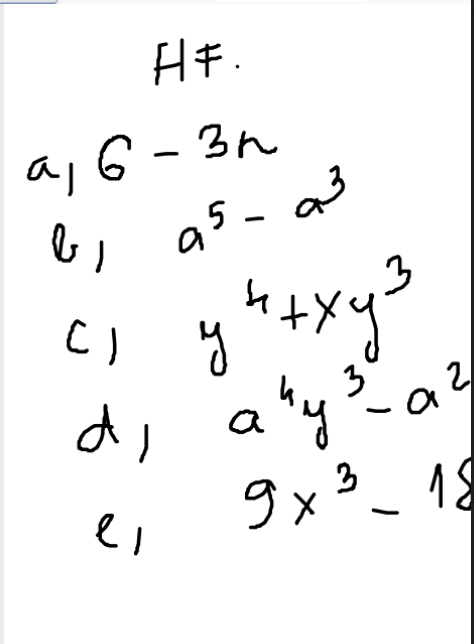 HF.
a, 6 - 3n
b, a⁵ - a³
c, y⁴ + xy³
d, a⁴y³ - a²
e, 9x³ - 18